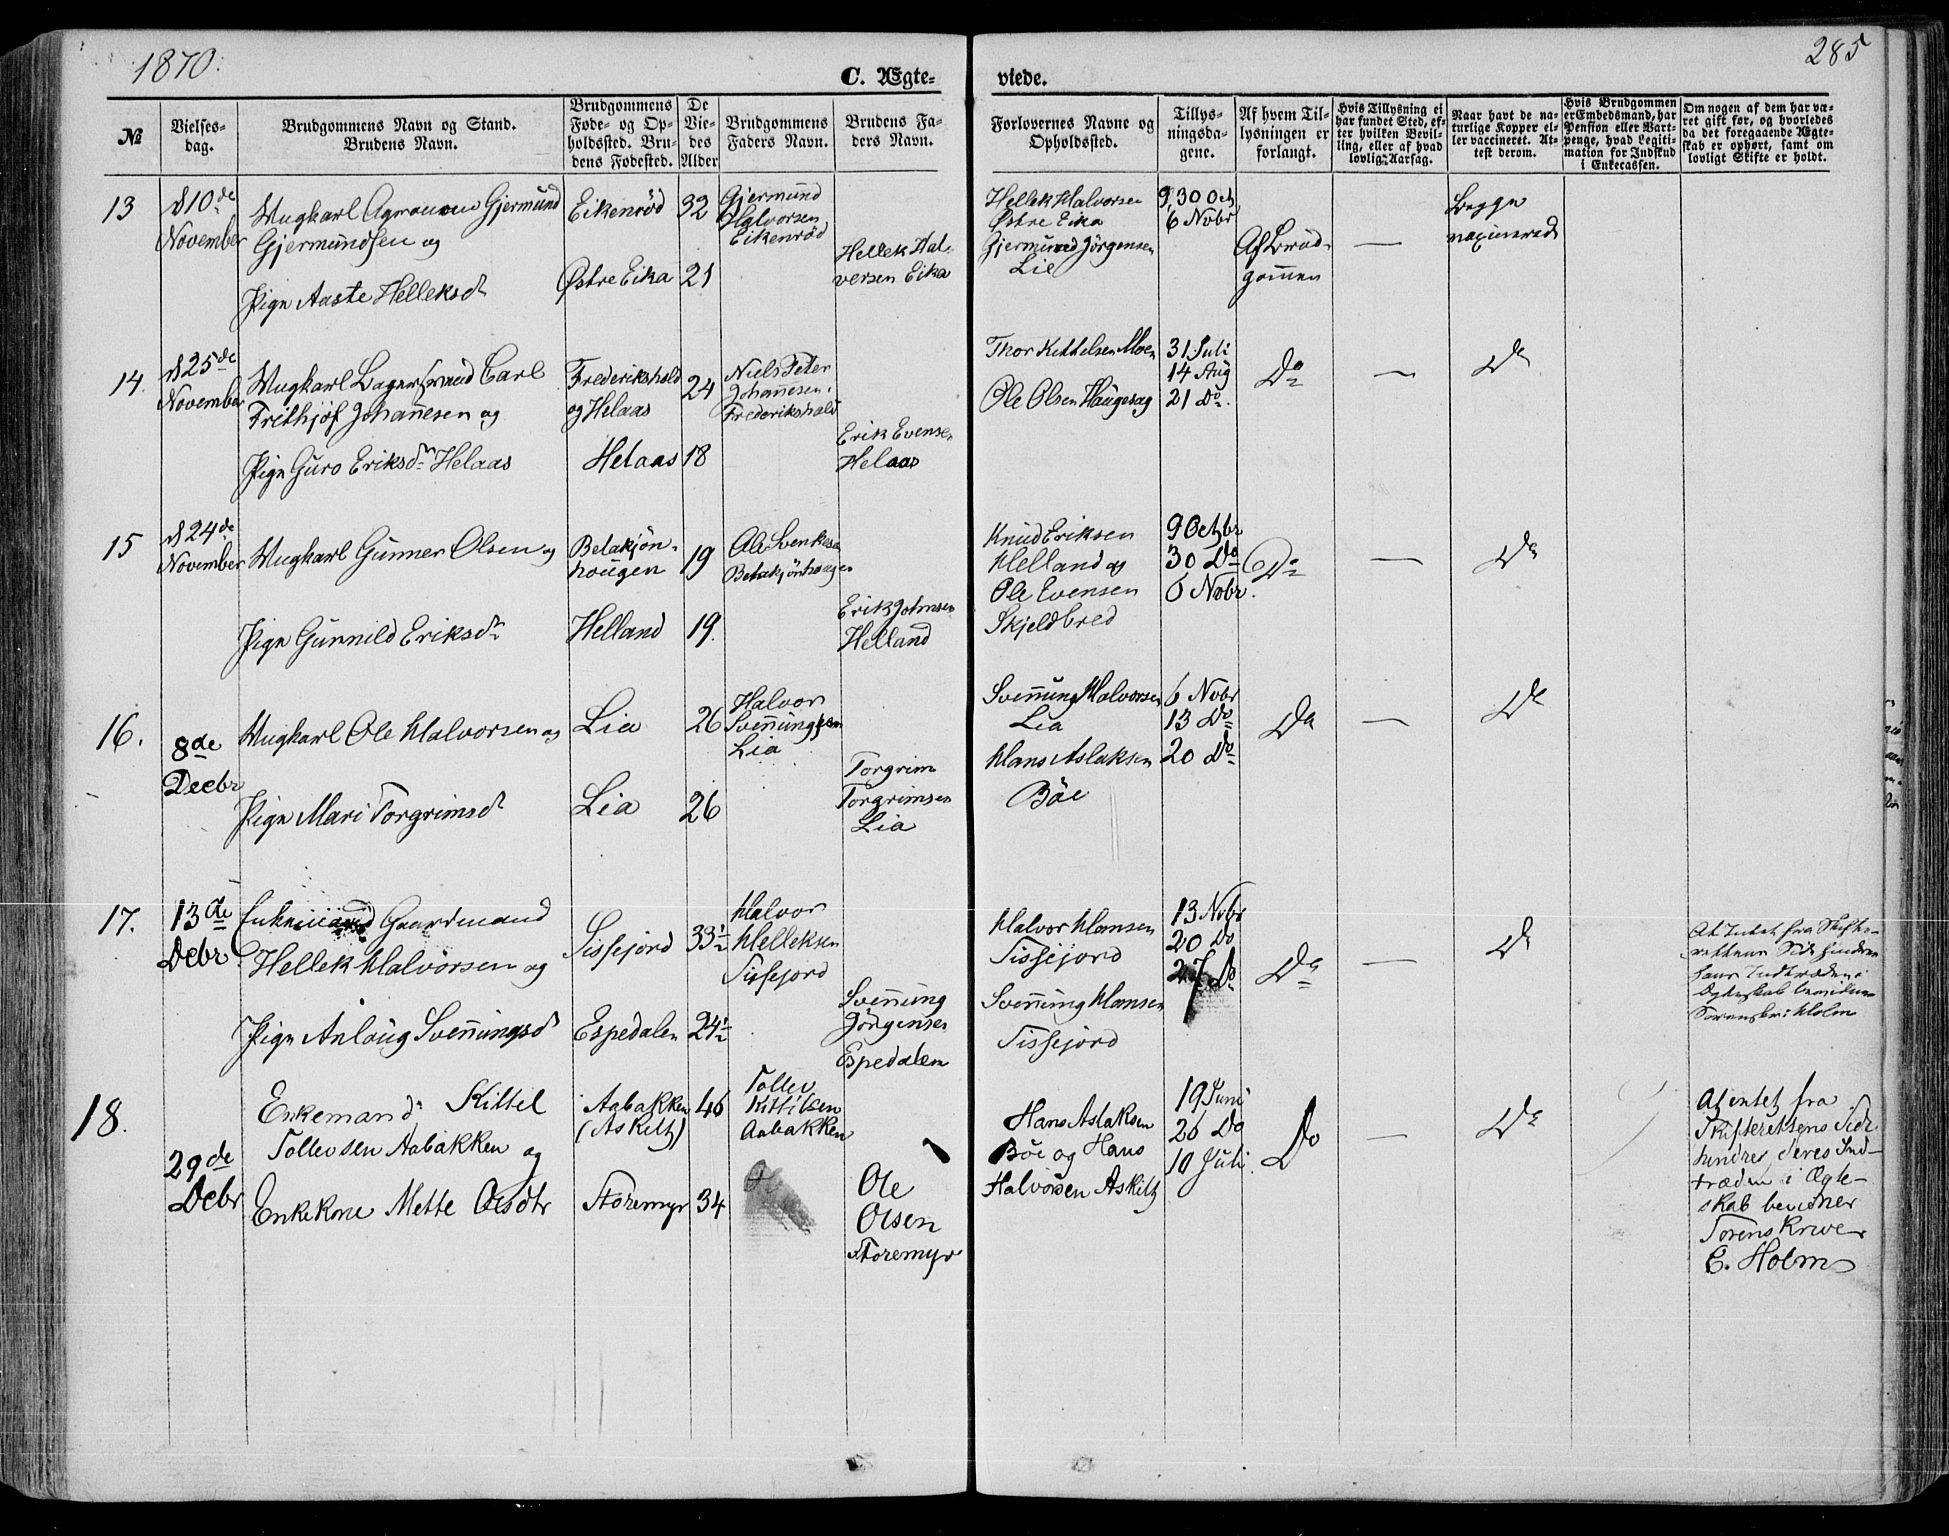 1870.
285
C. Ægte-
viede.
№
Vielses-
dag.
Brudgommens Navn og Stand.
Brudens Navn.
Brudgommens
Føde- og Op-
holdssted. Bru-
dens Fødested.
De
Vie-
des
Alder
Brudgommens
Faders Navn.
Brudens Fa-
ders Navn.
Forlovernes Navne og
Opholdssted.
Tillys-
ningsda-
gene.
Af hvem Til-
lysningen er
forlangt.
Hvis Tillysning ei
har fundet Sted, ef-
ter hvilken Bevil-
ling, eller af hvad
lovlig Aarsag.
Naar havt de na-
turlige Kopper el-
ler vaccineret. At-
test derom.
Hvis Brudgommen
er Embedsmand, har
Pension eller Vart-
penge, hvad Legiti-
mation for Indskud
i Enkecassen.
Om nogen af dem har væ-
ret gift før, og hvorledes
da det foregaaende Ægte-
skab er ophørt, samt om
lovligt Skifte er holdt.
13
d 10de
November
Ungkarl Agronom Gjermund
Gjermundsen og
Pige Aaste Helleksd
Eikenrød
Østre Eika
32
21
Gjermund
Halvorsen
Eikenrød
Hellek Hal-
vorsen Eika
Hellek Halvorsen
Østre Eika
Gjermund Jörgensen
Lie
9, 30 Oct,
6 Nobr
Af Brud-
gommen
—
Begge
vaccinerede
14.
d 25de
November
Ungkarl Carl
Frithjof Johannesen og
Pige Guro Eriksdr Helaas
Frederikshald
og Helaas
Helaas
24
18
Niels Peter
Johannesen
Frederikshald
Erik Evensen
Helaas
Thor Kittelsen Moen
Ole Olsen Haugesag
31 Juli
14 Aug
21 Do.
Do
—
Do
15
d 24de
November
Ungkarl Gunner Olsen og
Pige Gunnild Eriksdr
Betakjön-
hougen
Helland
19
19.
Ole Svenksen
Betakjönhougen
Erik Johnsen
Helland
Knud Eriksen
Helland og
Ole Evensen
Skjeldbred
9 Octbr
30 Do
6 Nobr.
Do
—
Do
16.
8de
Decbr
Ungkarl Ole Halvorsen og
Pige Mari Torgrimsd
Lia
Lia
26
26
Halvor
Svenningsen
Lia
Torgrim
Torgrimsen
Lia
Svenning Halvorsen
Lia
Hans Aslaksen
Böe
6 Nobr
13 Do
20 Do
Do
—
Do
17.
13de
Debr
Enkemand Gaardmand
Hellek Halvorsen og
Pige Anlaug Svenningsd
Sissejord
Espedalen
33½
24½
Halvor
Helleksen
Tissejord
Svenning
Jörgensen
Espedalen
Halvor Hansen
Tissejord
Svenning Hansen
Tissejord
13 Nobr
20 Do
27 Do
Do
—
Do
At Intet fra Skifte-
rettens Side hindrer
hans Indtræden i
Ægteskab bevidner
Sorenskri Holm
18.
29de
Debr
Enkemand Kittel
Tollevsen Aabakken og
Enkekone Mette Olsdtr
Aabakken
(Askiltz)
Storemyr
46
34
Tollev
Kittilsen
Aabakken
Ole
Olsen
Storemyr
Hans Aslaksen
Böe og Hans
Halvorsen Askiltz
19 Juni
26 Do
10 Juli.
Do
—
Do
At intet fra
Skifterettens Side
hindrer deres Ind-
træden i Ægte-
skab bevidner
Sorenskriver
C. Holm